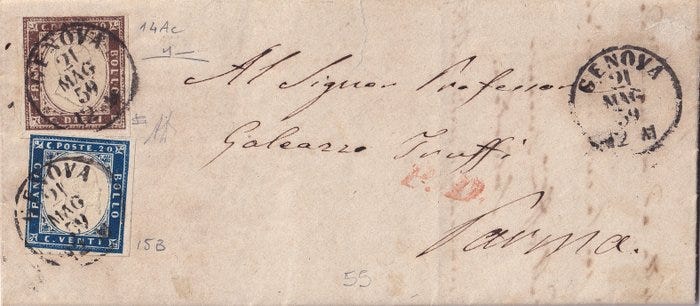 14Ac
GENOVA
21
MAG
59
C. POSTE
FRANCO
BOLLO
C. DIECI
GENOVA
21
MAG
59
Al Signor Professor
Galeazzo Truffi
P. D.
Parma.
GENOVA
21
MAG
59
C. POSTE. 20
FRANCO
BOLLO
C. VENTI
15B
55